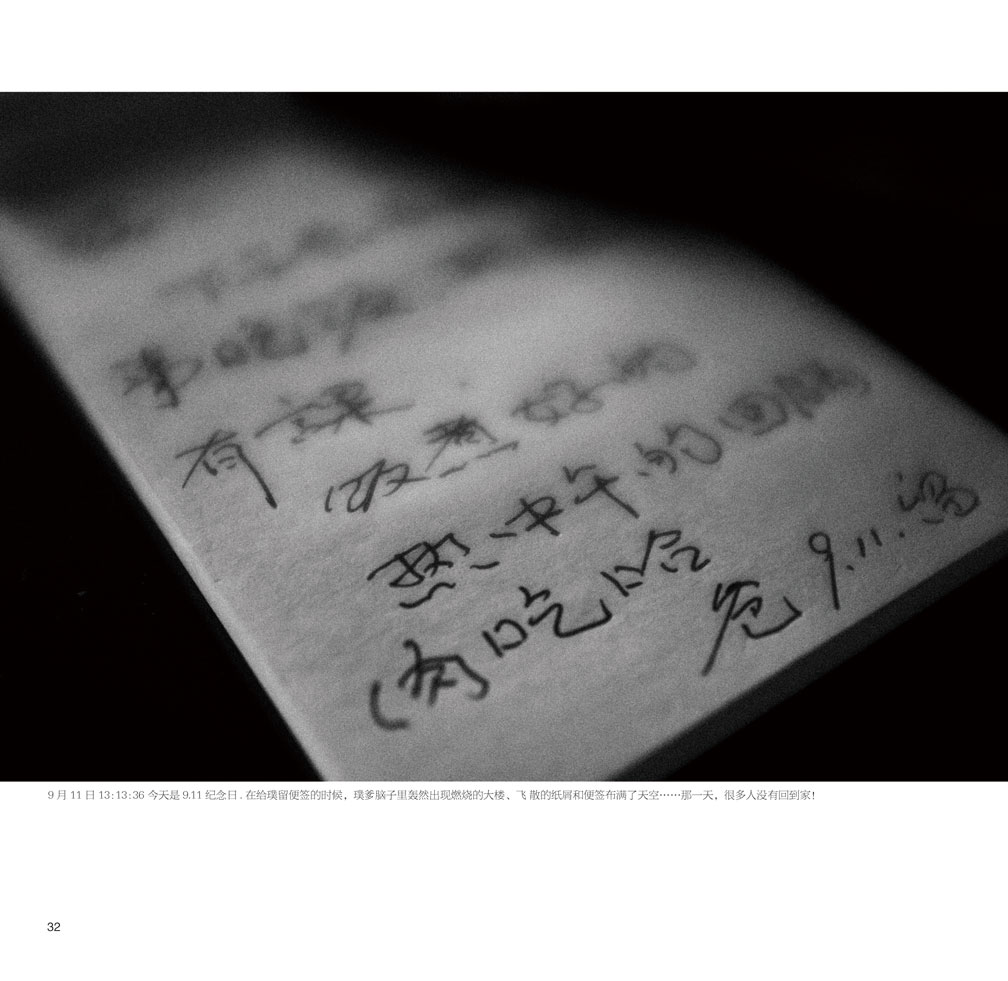 有课
饭煮好的
热中午的回锅
肉吃哈
爸 9.11.
9 月 11 日 13:13:36 今天是 9.11 纪念日 . 在给璞留便签的时候，璞爹脑子里轰然出现燃烧的大楼、飞 散的纸屑和便签布满了天空……那一天，很多人没有回到家！
32